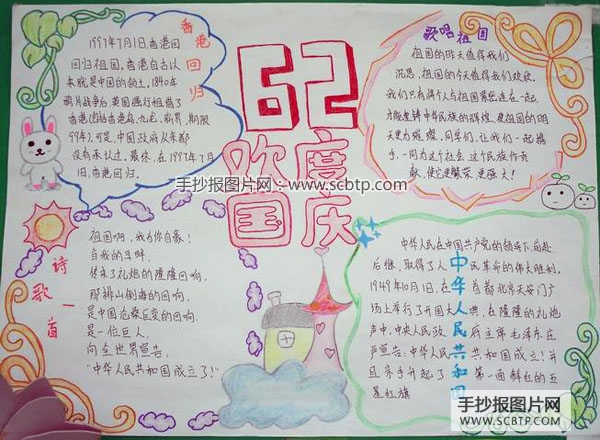 香港回归
1997年7月1日,香港回
回归祖国。香港自古以
来就是中国的领土。1840年
鸦片战争后,英国强行租借了
99年)可是,中国政府从来都
没有承认过。最终,在1997年7月
1日,香港回归。
62
欢度
国庆
歌唱祖国
祖国的昨天值得我们
沉思,祖国的今天值得我们欢欣。
我们只有将个人与祖国紧密连在一起,
方能建铸中华民族的辉煌,使祖国的明
天更为璀璨。同学们,让我们一起携
手,一同为这个社会,这个民族作贡
献,使它更繁荣,更强大!
手抄报图片网:www.scbtp.com
诗歌一首
祖国啊,我为你自豪!
当我的耳畔,
传来了礼炮的隆隆回响,
那排山倒海的回响,
是中国沧桑巨变的回响,
是一位巨人,
向全世界宣告:
“中华人民共和国成立了!”
中华人民共和国
中华人民在中国共产党的领导下,前赴
后继,取得了人民革命的伟大胜利。
1949年10月1日,在首都北京天安门广
场上举行了开国大典,在隆隆的礼炮
声中,中央人民政府主席毛泽东庄
严宣告:中华人民共和国成立!并
且亲手升起了第一面鲜红的五
星红旗
手抄报图片网
WWW.SCBTP.COM